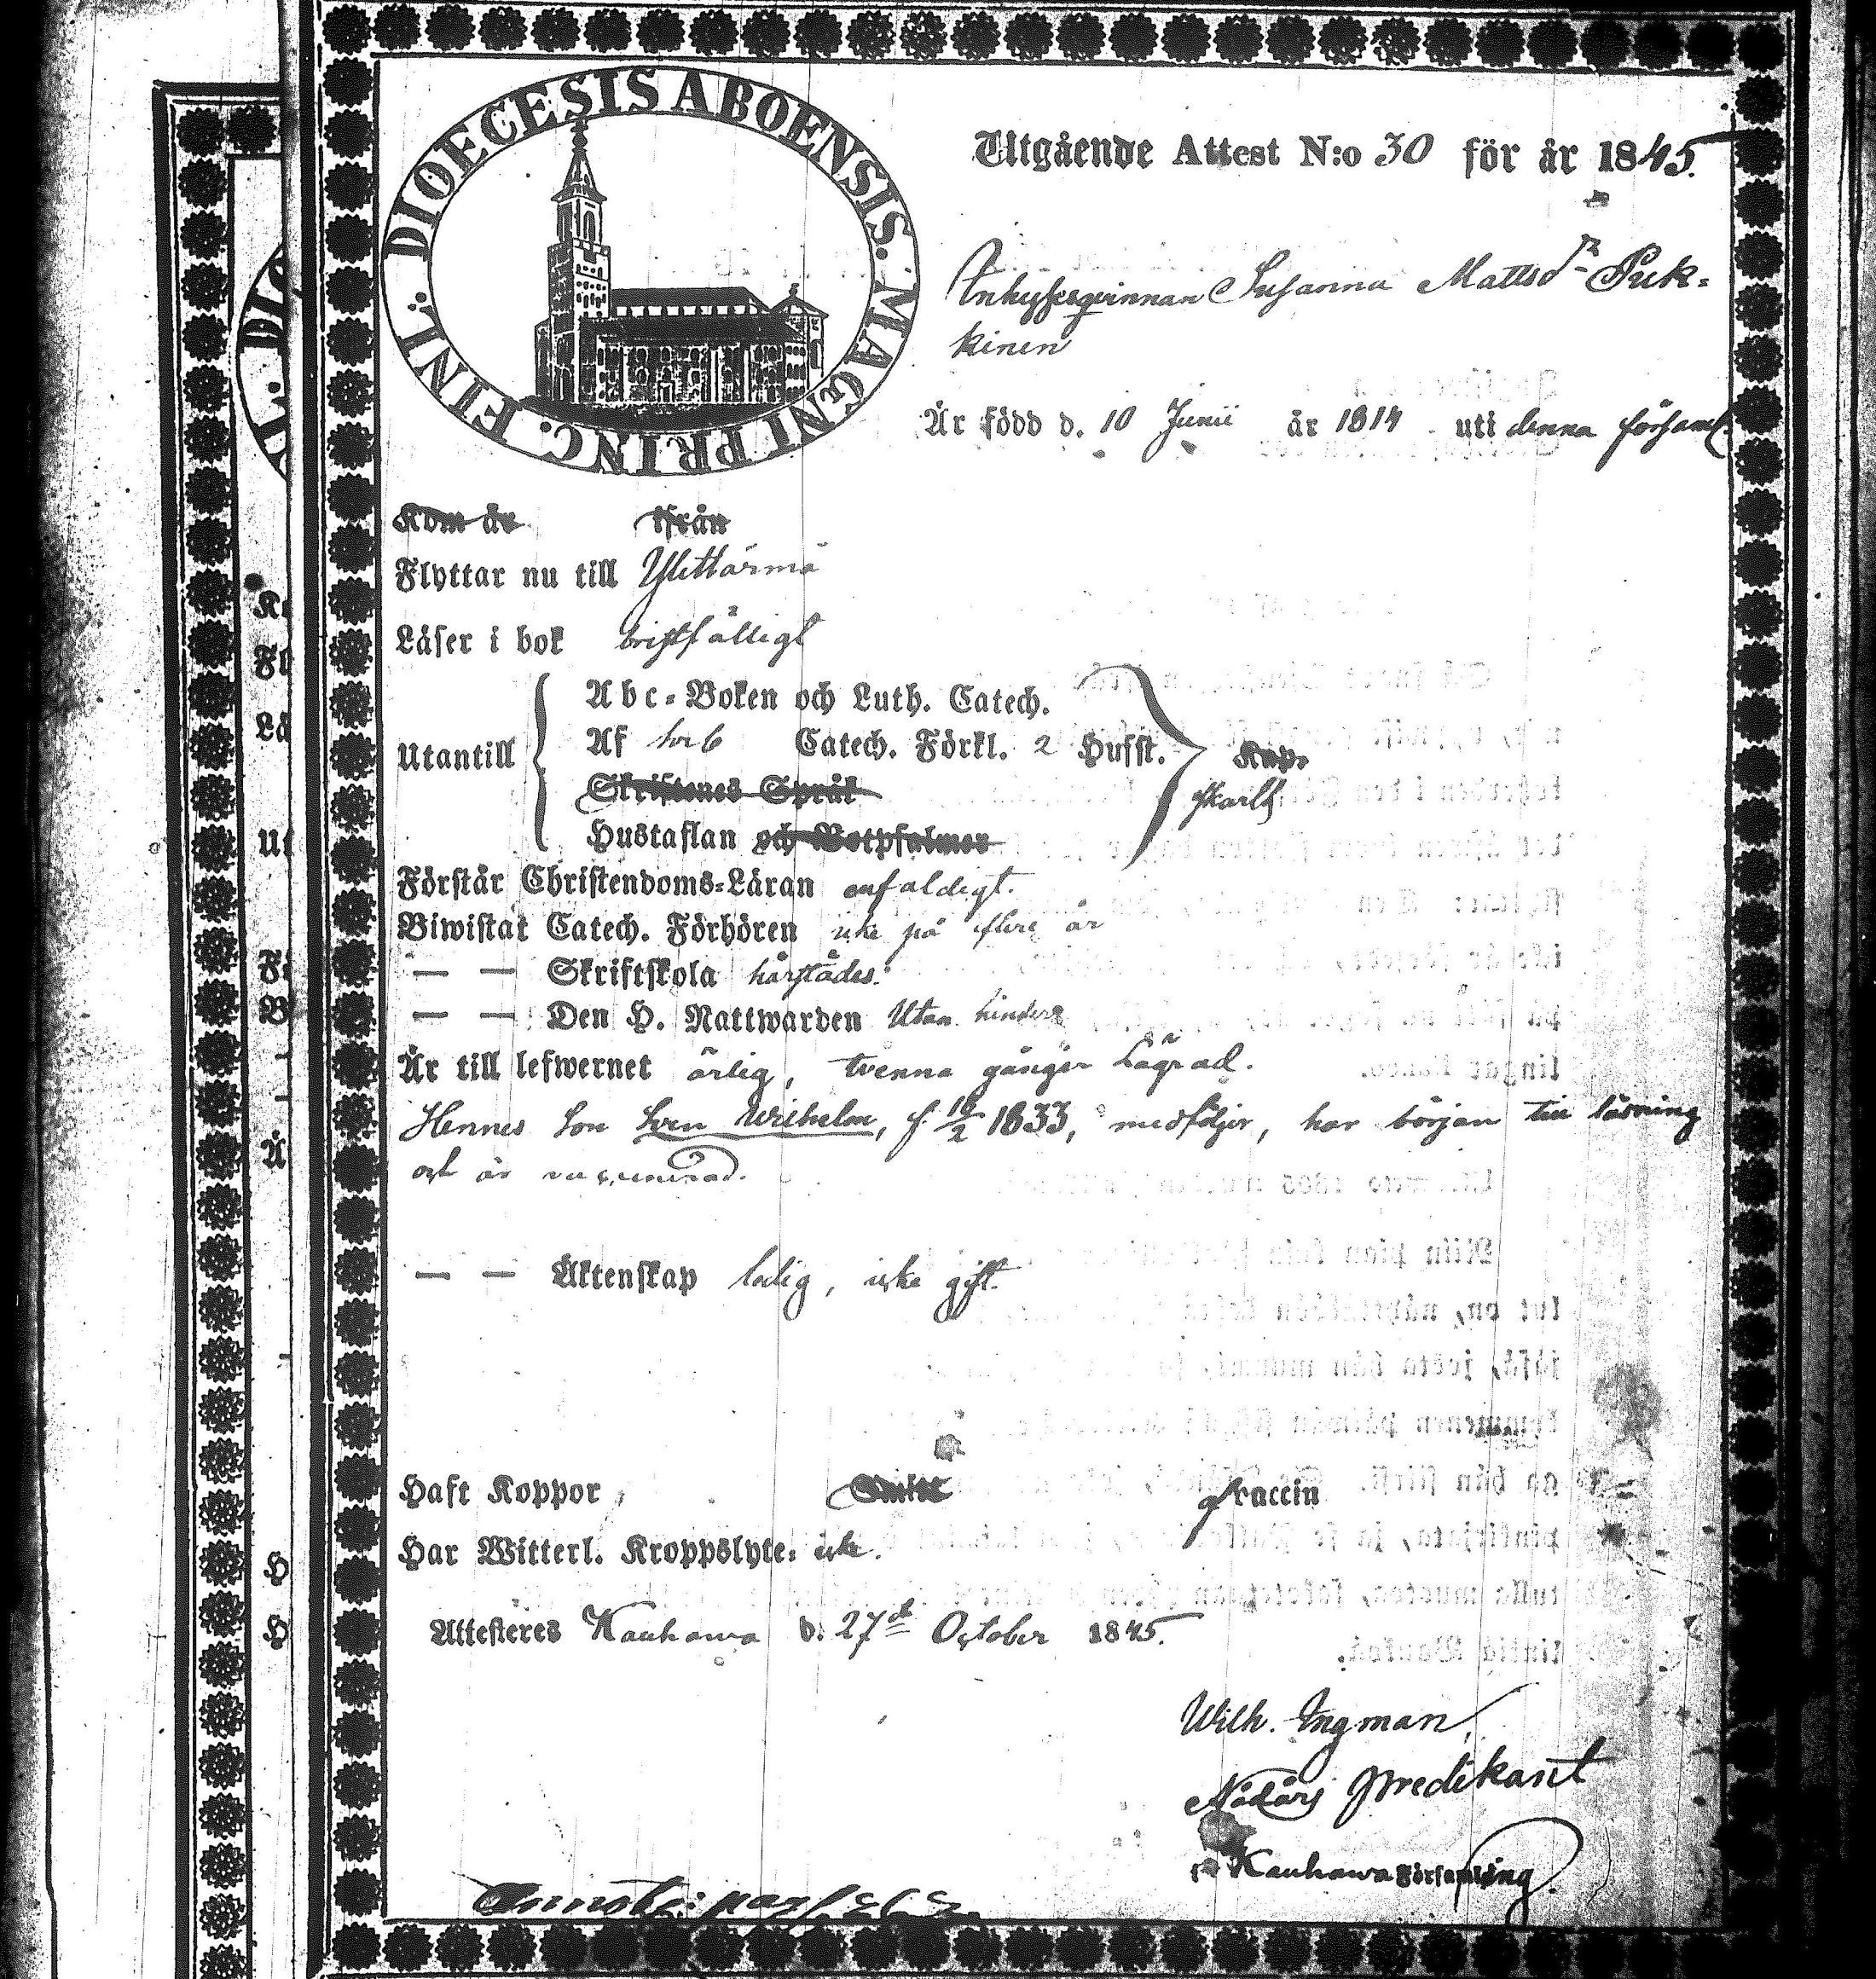 DIOECESIS ABOENSIS. MAGNI PRINC. FINL.
Utgående Attest N:o 30 för år 1845.
Inhysesqvinnan Susanna Mattsdr Puk-
kinen
Är född d. 10 Junii år 1814 uti denna församl.
Kom år ifrån
Flyttar nu till Ylettärmä
Läser i bok bristfälligt
Utantill
Abc-Boken och Luth. Catech.
Af Catech. Förkl. 2 Husst.
Skriftenes Språk
Hustaflan och Botpsalmer
Kap.
Förstår Christendoms-Läran enfaldigt.
Biwistat Catech. Förhören icke på flere år
— — Skriftskola härstädes.
— — Den H. Nattwarden Utan hinder
Är till lefwernet ärlig, tvenne gånger lägrad.
Hennes Son Sven Wilhelm, f. 18/2 1833, medföljer, har början till läsning
och är vaccinerad.
— — Äktenskap ledig, icke gift.
Haft Koppor, Smitt vaccin
Har Witterl. Kroppslyte: icke.
Attesteres Kauhawa d. 27de October 1845.
Wilh. Ingman,
Nådårs Predikant
i Kauhawa Församling.